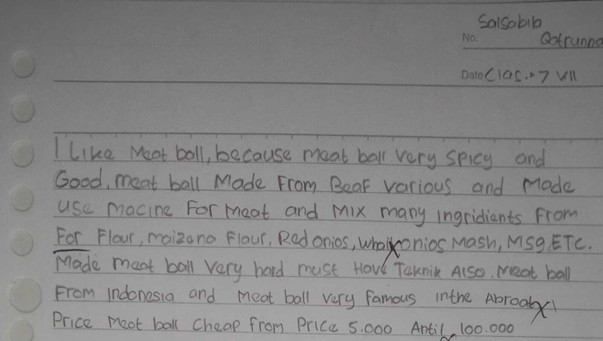 Salsabib
No. Qotrunna
Date Clas :- 7 VII
I Like Meat ball, because meat ball very spicy and
Good, meat ball Made From Beaf various and Made
use macine For Meat and Mix many ingridients From
For Flour, maizana Flour, Red onios, onios Mash, Msg, ETC.
Made meat ball Very hard must Have Teknik Also. Meat ball
From Indonesia and Meat ball Very Famous in the Abroat
Price Meat ball Cheap From Price 5.000 Antil 100.000